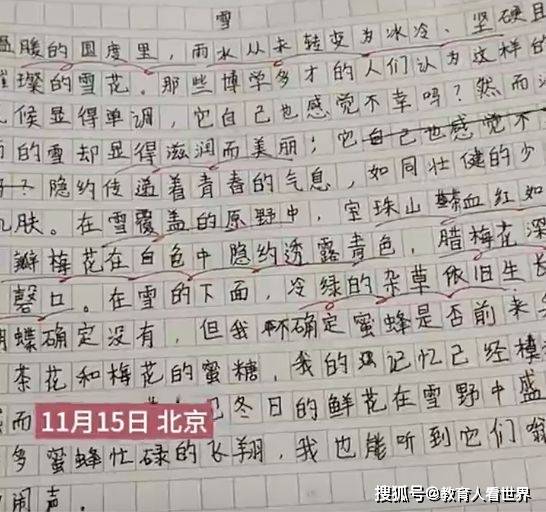 雪
暖的国度里，雨水从未转变为冰冷、坚硬且
璨的雪花。那些博学多才的人们认为这样的
候显得单调，它自己也感觉不幸吗？然而
的雪却显得滋润而美丽；它自己也感觉不
隐约传递着青春的气息，如同壮健的少
肌肤。在雪覆盖的原野中，宝珠山 血红如
瓣梅花在白色中隐约透露青色，腊梅花深
磬口。在雪的下面，冷绿的杂草依旧生长
蝴蝶确定没有，但我 不确定蜜蜂是否前来
茶花和梅花的蜜糖，我的 记忆已经模
而 冬日的鲜花在雪野中盛
多蜜蜂忙碌的飞翔，我也能听到它们嗡
闹声。
11月15日 北京
搜狐号@教育人看世界